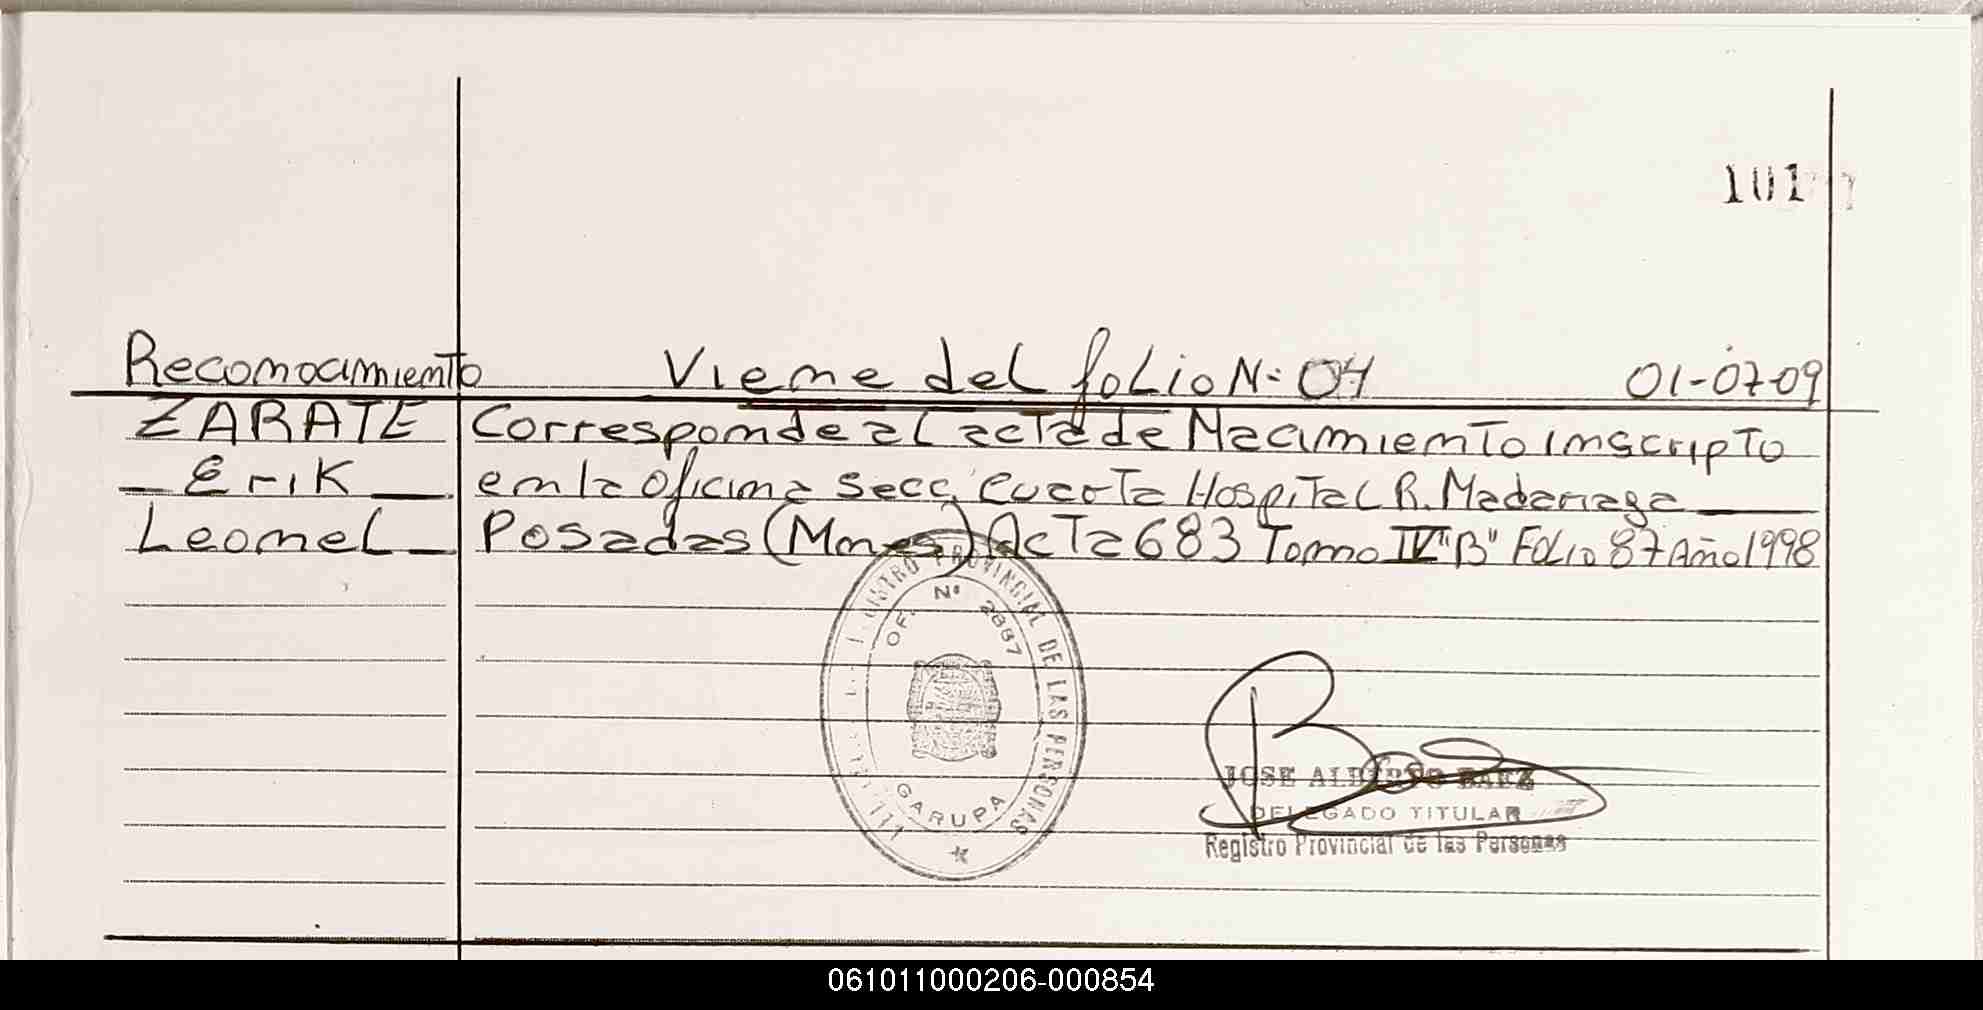 101
Reconocimiento Viene del folio N: 04 01-07-09
ZARATE Corresponde al acta de Nacimiento inscripto
Erik en la oficina Secc. Cuarta Hospital R. Madariaga
Leonel Posadas (Mnes) Acta 683 Tomo IV "B" Folio 87 Año 1998
PROVINCIAL DE LAS PERSONAS
OF. Nº 2887
GARUPA
JOSE ALBERTO BAEZ
DELEGADO TITULAR
Registro Provincial de las Personas
061011000206-000854